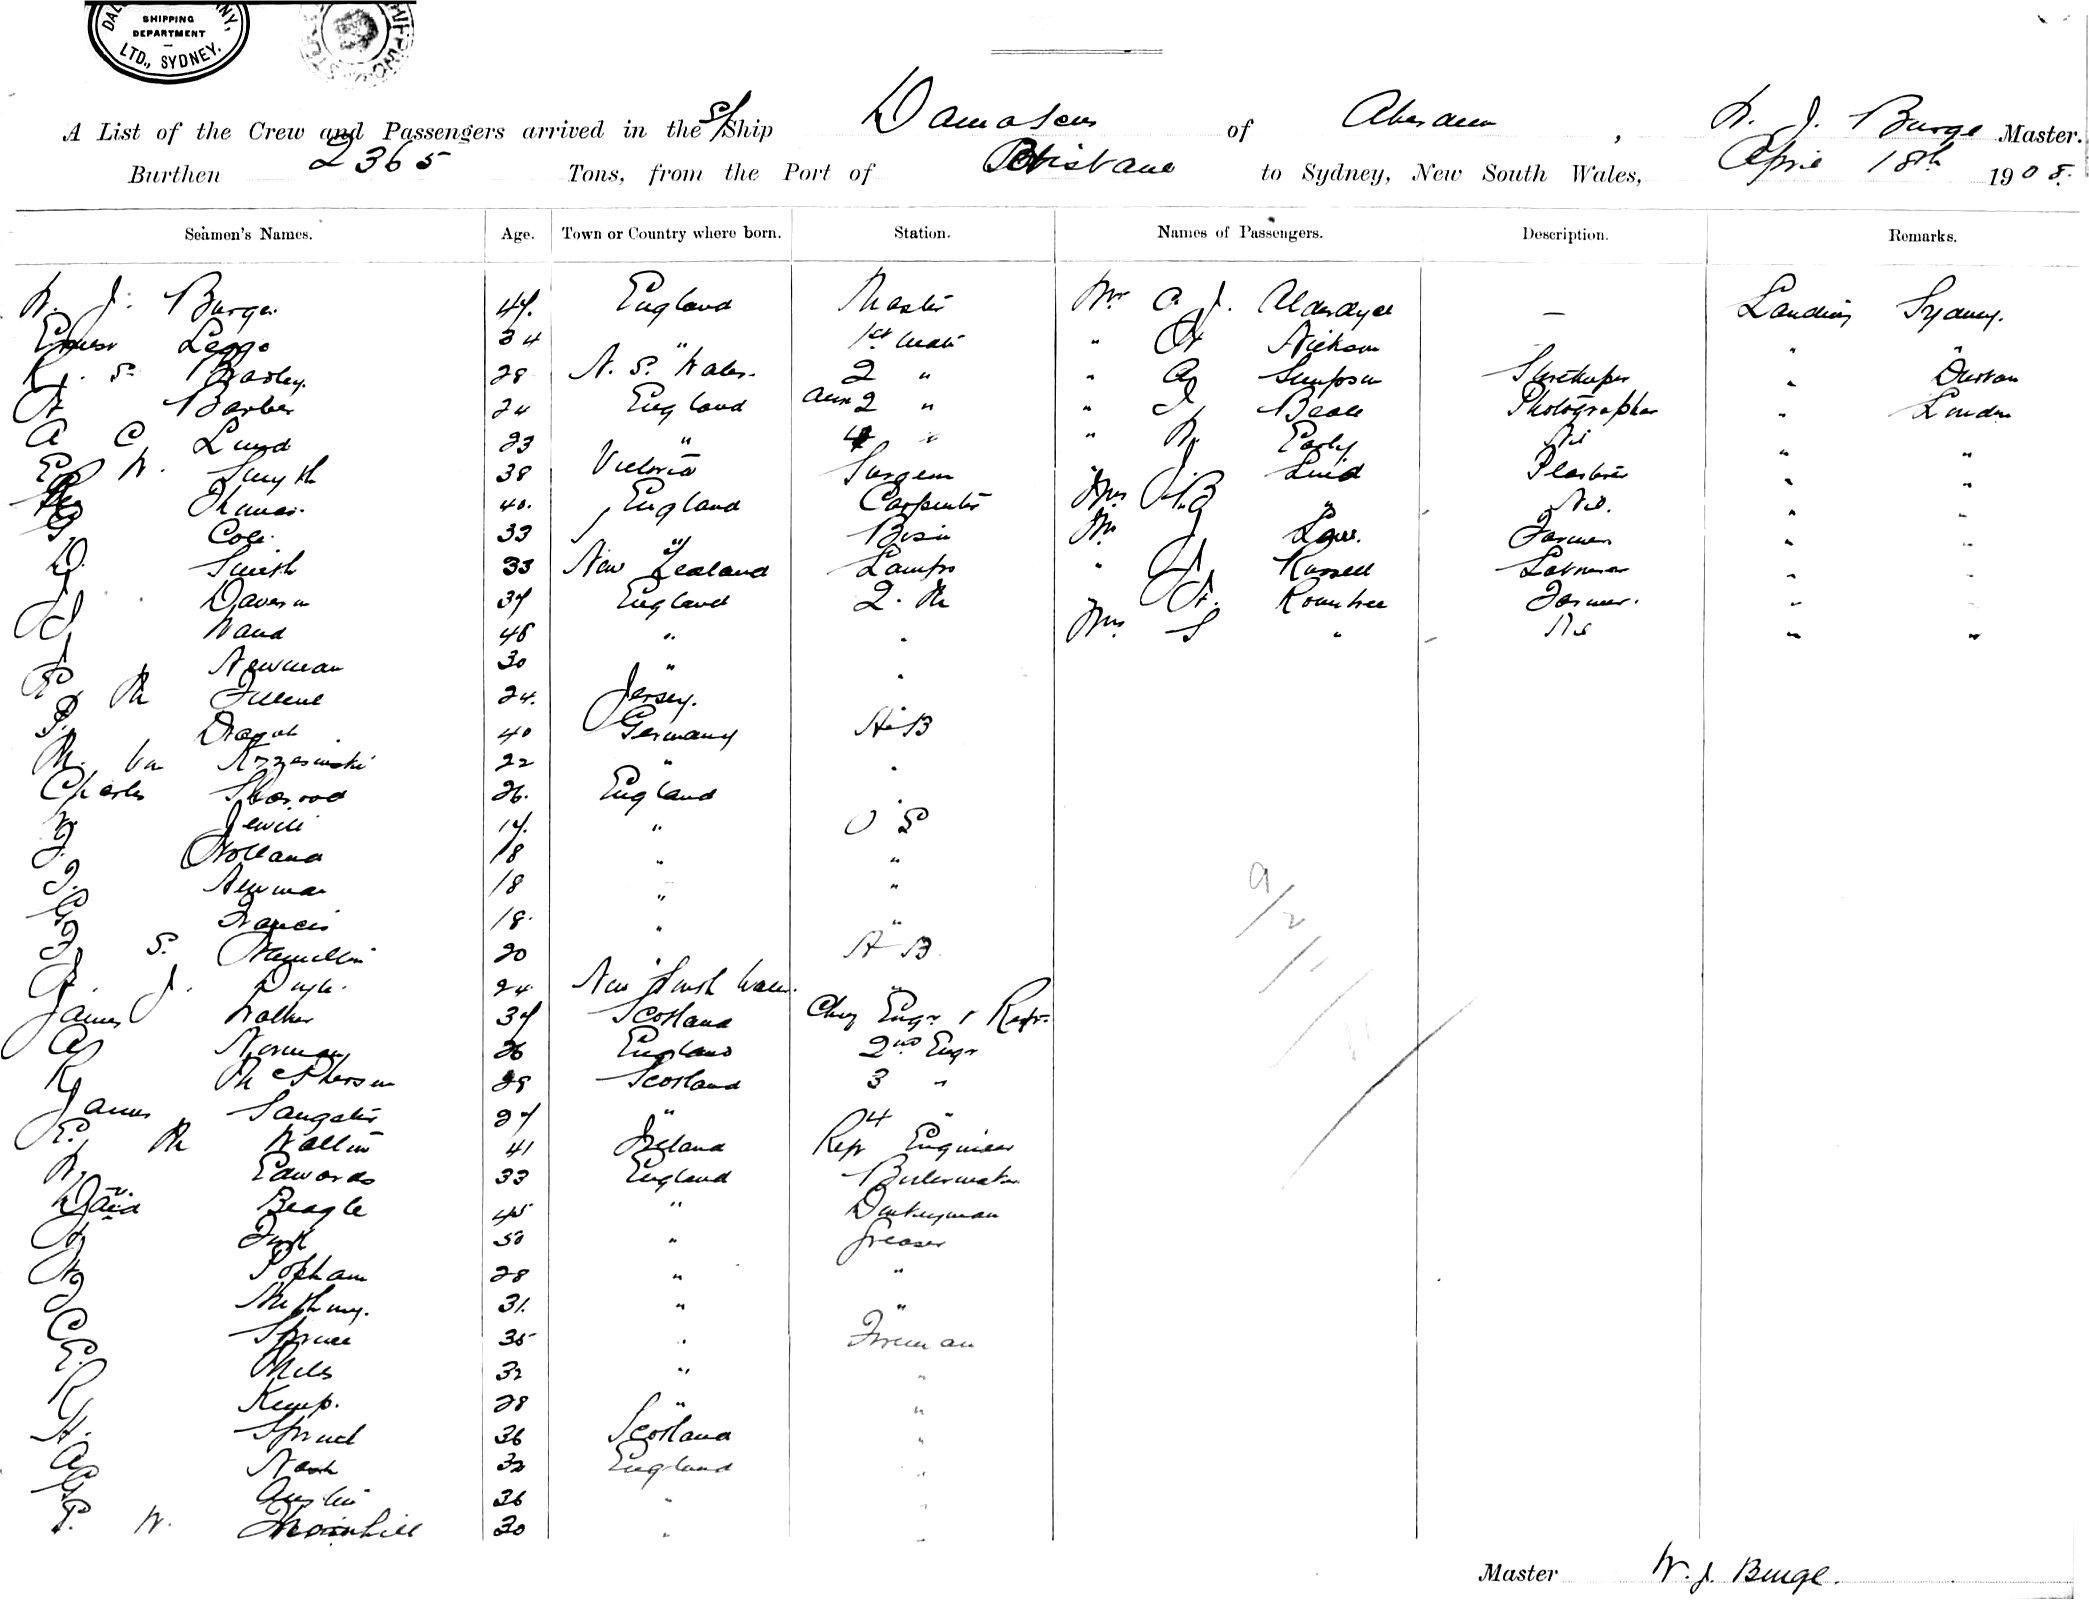 SHIPPING
DEPARTMENT
LTD., SYDNEY.
A List of the Crew and Passengers arrived in the S/Ship Damascus of Aberdeen, W. J. Burge Master.
Burthen 2365 Tons, from the Port of Brisbane to Sydney, New South Wales, April 18th 1908.
Seamen's Names. Age. Town or Country where born. Station. Names of Passengers. Description. Remarks.
W. J. Burge. 47. England Master Mr C. J. Alderdyce — Landing Sydney.
Ernest Leggo 34 " 1st Mate " H Nickson " "
S. Barley. 28 N. S. Wales. 2 " " A Simpson Storekeeper " Durban
H Barber 24 England 2 " " J. Beale Photographer " London
A C Lund 23 " 4 " " W. Early " "
E W. Smyth 38 Victoria Surgeon " J. Luid Plasterer " "
Thomas. 40. England Carpenter Mrs " " "
G Cole. 33 " Bosn Mr J Law. Farmer " "
D. Smith 33 New Zealand Lamps " Russell Labourer " "
J Daveson 37 England 2. M H. Rowntree Farmer. " "
J Wand 48 " " Mrs S " " "
J Newman 30 " "
P M Filleul 24. Jersey. "
P. 40 Germany A B
M. Von Krzesinski 22 " "
Charles 26. England "
Jewell 17. " O S
F. Holland 18 " "
J. Newman 18 " "
G Francis 18. " "
F S. Hamillin 20 " A B
J. Doyle. 24 New South Wales. "
James Walker 37 Scotland Chief Engr & Refr.
A Norman 26 England 2nd Engr
R McPherson 28 Scotland 3 "
James Sangster 27 " 4 "
E. M Wallin 41 Ireland Refr Engineer
W. Edwards 33 England Boilermaker
David Beagle 45 " Donkeyman
H 50 " Greaser
H Popham 28 " "
J Anthony. 31. " "
C Spruce 35 " Fireman
E. Mills 32 " "
R Kemp. 28 " "
H. Spruel 36 Scotland "
A Nash 32 England "
G Austin 36 " "
P. W. Thornhill 30 " "
Master W. J. Burge.